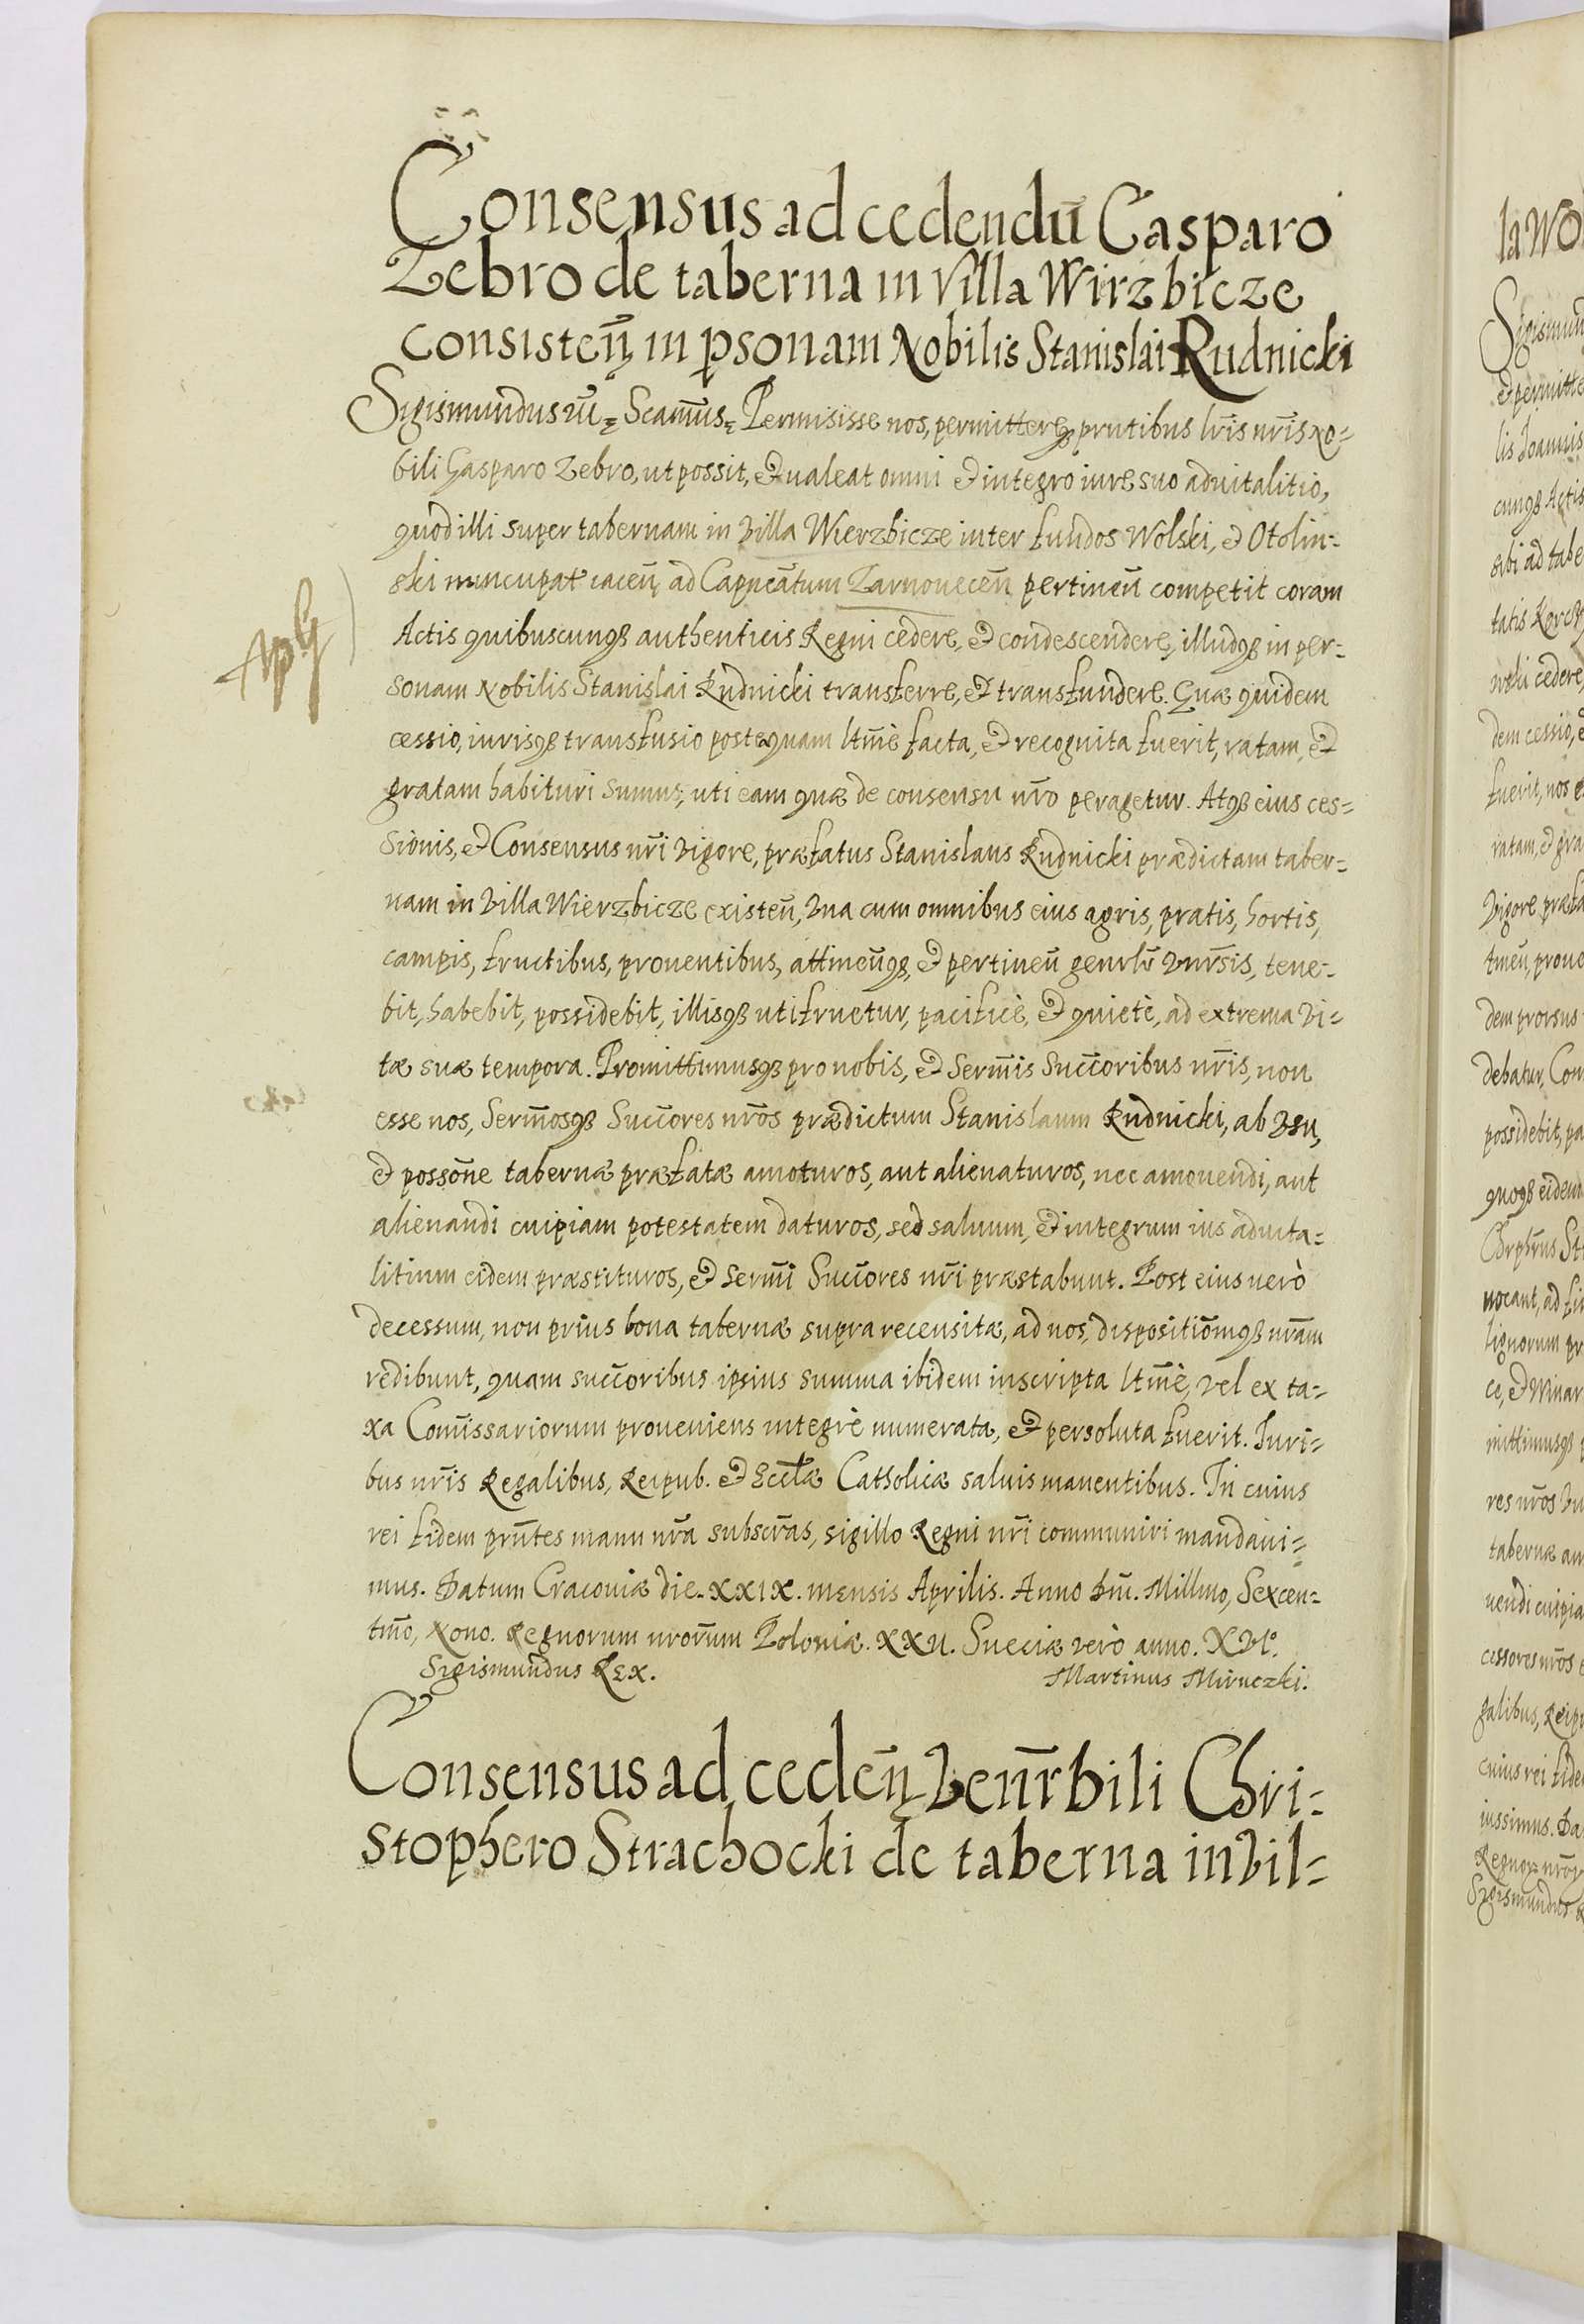 Consensus ad cedendū Casparo
Zebro de taberna in Villa Wirzbicze
consisteñ in psonam Nobilis Stanislai Rudnicki
Sigismundus III Scamus Permisisse nos, permittereqȝ prntibus lris nris No=
bili Gasparo Zebro, ut possit, et ualeat omni et integro iure suo aduitalitio,
quod illi super tabernam in Villa Wierzbicze inter fundos Wolski, et Otolin=
ski nuncupat iaceñ ad Capneātum Zarnoveceñ pertineñ competit coram
Actis quibuscunqȝ authenticis Regni cedere, et condescendere, illudqȝ in per=
sonam Nobilis Stanislai Rudnicki transferre, et transfundere. Quæ quidem
cessio, iurisqȝ transfusio posteaquam ltmè facta, et recognita fuerit, ratam, et
gratam habituri sumus, uti eam quæ de consensu nro peragetur. Atqȝ eius ces=
sionis, et Consensus nri vigore, præfatus Stanislaus Rudnicki prædictam taber=
nam in Villa Wierzbicze existeñ, vna cum omnibus eius agris, pratis, hortis,
campis, fructibus, prouentibus, attineñqȝ, et pertineñ genrlr vnrsis, tene=
bit, habebit, possidebit, illisqȝ utifruetur, pacificè, et quietè, ad extrema vi=
tæ suæ tempora. Promittimusqȝ pro nobis, et Sermis Succoribus nris, non
esse nos, Sermosqȝ Succores nros prædictum Stanislaum Rudnicki, ab vsu,
et possone tabernæ præfatæ amoturos, aut alienaturos, nec amouendi, aut
alienandi cuipiam potestatem daturos, sed saluum, et integrum ius aduita=
litium eidem præstituros, et Sermi Succores nri præstabunt. Post eius uerò
decessum, non prius bona tabernæ supra recensitæ, ad nos, dispositiomqȝ nram
redibunt, quam succoribus ipsius summa ibidem inscripta ltmè, vel ex ta=
xa Comissariorum proueniens integrè numerata, et persoluta fuerit. Iuri=
bus nris Regalibus, Reipub. et Ecclæ Catholicæ saluis manentibus. In cuius
rei fidem prntes manu nra subscras, sigillo Regni nri communiri mandaui=
mus. Datum Cracoviæ die. XXIX. mensis Aprilis. Anno Dni. Millmo, Sexcen=
tmo, Nono. Regnorum nrorum Poloniæ. XXII. Sueciæ verò anno. XVIº.
Sigismundus Rex. Martinus Miruczki.
Consensus ad cedeñ Venrbili Chri=
stophero Strachocki de taberna in Vil=